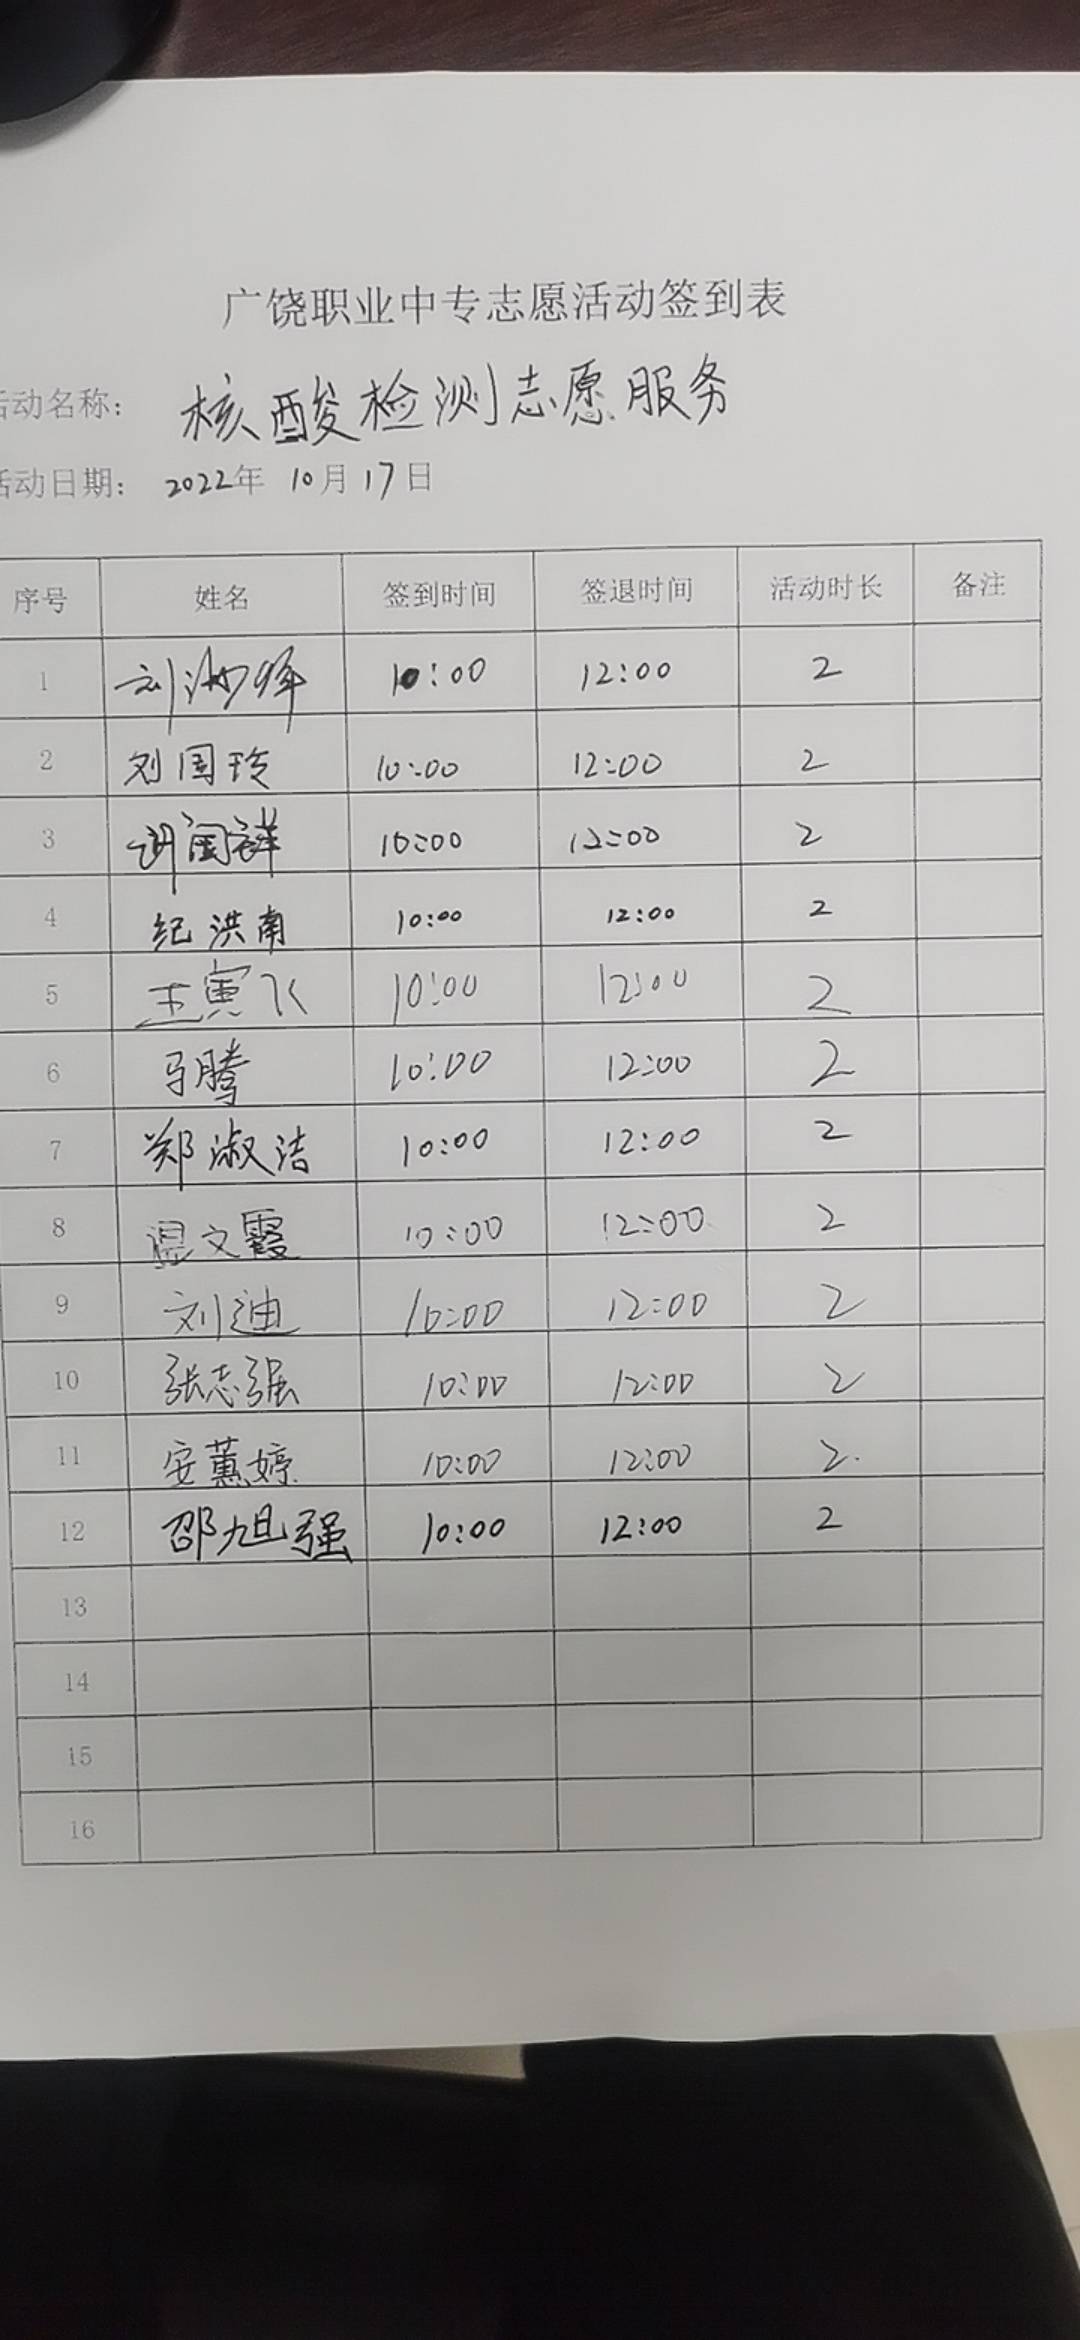 广饶职业中专志愿活动签到表
活动名称： 核酸检测志愿服务
活动日期： 2022年 10月17日
序号 姓名 签到时间 签退时间 活动时长 备注
1 刘 10:00 12:00 2
2 刘国玲 10:00 12:00 2
3 10:00 12:00 2
4 纪洪南 10:00 12:00 2
5 王寅飞 10:00 12:00 2
6 马腾 10:00 12:00 2
7 郑淑洁 10:00 12:00 2
8 温文霞 10:00 12:00 2
9 刘迪 10:00 12:00 2
10 张志强 10:00 12:00 2
11 安蕙婷 10:00 12:00 2
12 邵旭强 10:00 12:00 2
13
14
15
16